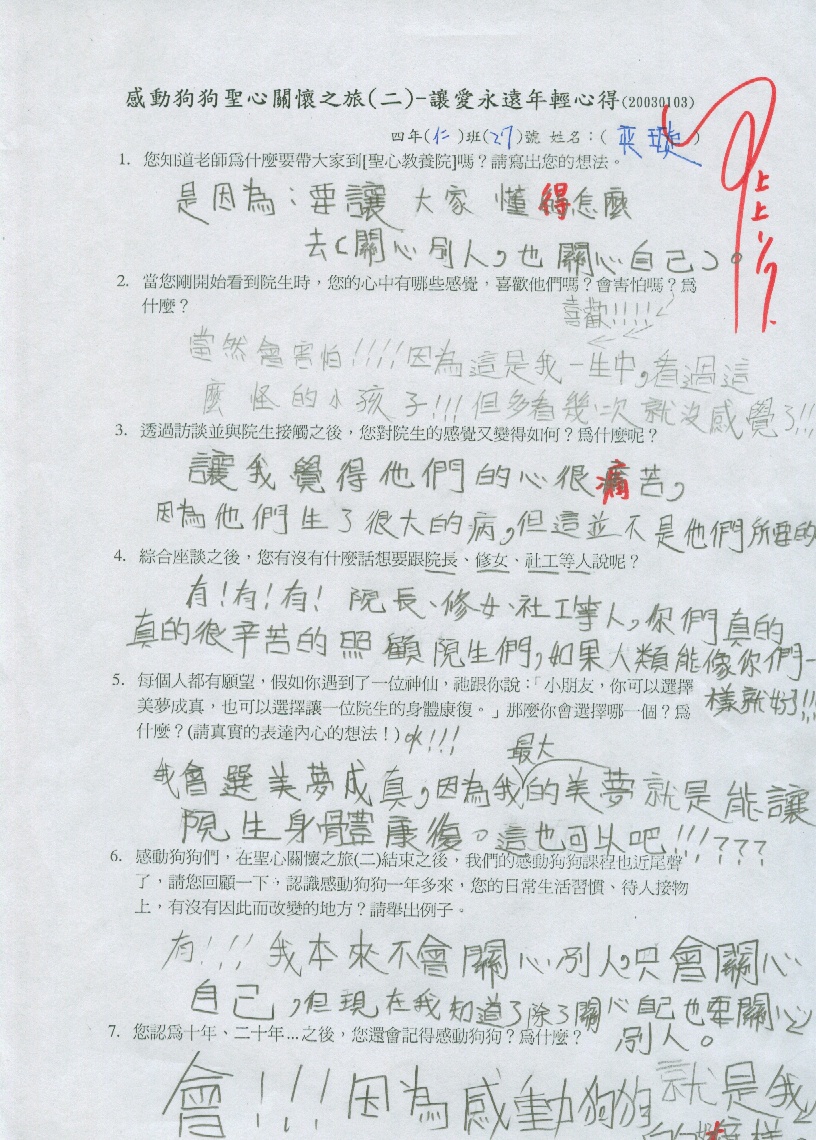 感動狗狗聖心關懷之旅(二)-讓愛永遠年輕心得(20030103)
四年(仁)班(27)號 姓名：( )
上上
1. 您知道老師爲什麼要帶大家到[聖心教養院]嗎？請寫出您的想法。
是因為：要讓大家懂得怎麼
去(關心別人，也關心自己)。
2. 當您剛開始看到院生時，您的心中有哪些感覺，喜歡他們嗎？會害怕嗎？爲
什麼？
喜歡!!!!
當然會害怕!!!!因為這是我一生中，看過這
麼怪的小孩子!!!但多看幾次就沒感覺了!!!
3. 透過訪談並與院生接觸之後，您對院生的感覺又變得如何？爲什麼呢？
讓我覺得他們的心很痛苦，
因為他們生了很大的病，但這並不是他們所要的
4. 綜合座談之後，您有沒有什麼話想要跟院長、修女、社工等人說呢？
有!有!有! 院長、修女、社工等人，你們真的
真的很辛苦的照顧院生們，如果人類能像你們一
樣就好了!!!
5. 每個人都有願望，假如你遇到了一位神仙，祂跟你說：「小朋友，你可以選擇
美夢成真，也可以選擇讓一位院生的身體康復。」那麼你會選擇哪一個？爲
什麼？(請真實的表達內心的想法！)
我會選美夢成真，因為我最大的美夢就是能讓
院生身體康復。這也可以吧!!!???
6. 感動狗狗們，在聖心關懷之旅(二)結束之後，我們的感動狗狗課程也近尾聲
了，請您回顧一下，認識感動狗狗一年多來，您的日常生活習慣、待人接物
上，有沒有因此而改變的地方？請舉出例子。
有!!!我本來不會關心別人，只會關心
自己，但現在我知道了除了關心自己也要關心
別人。
7. 您認爲十年、二十年...之後，您還會記得感動狗狗？爲什麼？
會!!!因為感動狗狗就是我